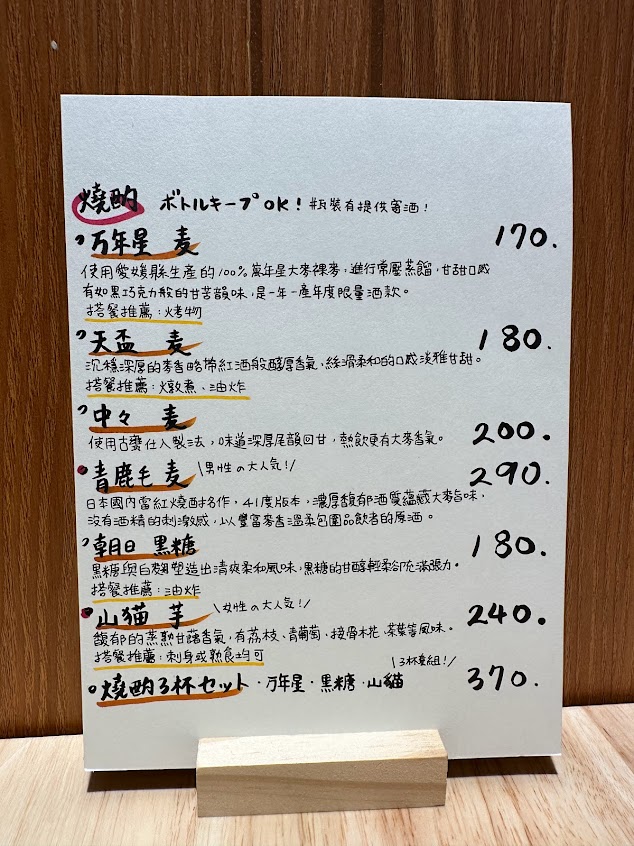 燒酌 ボトルキープOK! 瓶裝有提供寄酒!
万年星 麦 170.
使用愛媛縣生產的100%萬年星大麥裸麥,進行常壓蒸餾,甘甜口感
有如黑巧克力般的甘苦韻味,是一年一產年度限量酒款。
搭餐推薦:烤物
天盃 麦 180.
沉穩深厚的麥香略帶紅酒般醇厚香氣,絲滑柔和的口感淡雅甘甜。
搭餐推薦:燉煮、油炸
中々 麦 200.
使用古甕仕入製法,味道深厚尾韻回甘,熱飲更有大麥香氣。
青鹿毛 麦 \男性の大人気!/ 290.
日本國內當紅燒酌名作,41度版本,濃厚馥郁酒質蘊藏大麥旨味,
沒有酒精的刺激感,以豐富麥香溫柔包圍品飲者的原酒。
朝日 黒糖 180.
黑糖與白麴塑造出清爽柔和風味,黑糖的甘醇輕柔卻充滿張力。
搭餐推薦:油炸
山猫 芋 \女性の大人気!/ 240.
馥郁的蒸熟甘藷香氣,有荔枝、青葡萄、接骨木花、茶葉等風味。
搭餐推薦:刺身或熟食均可
\3杯套組!/
燒酌3杯セット・万年星・黑糖・山貓 370.